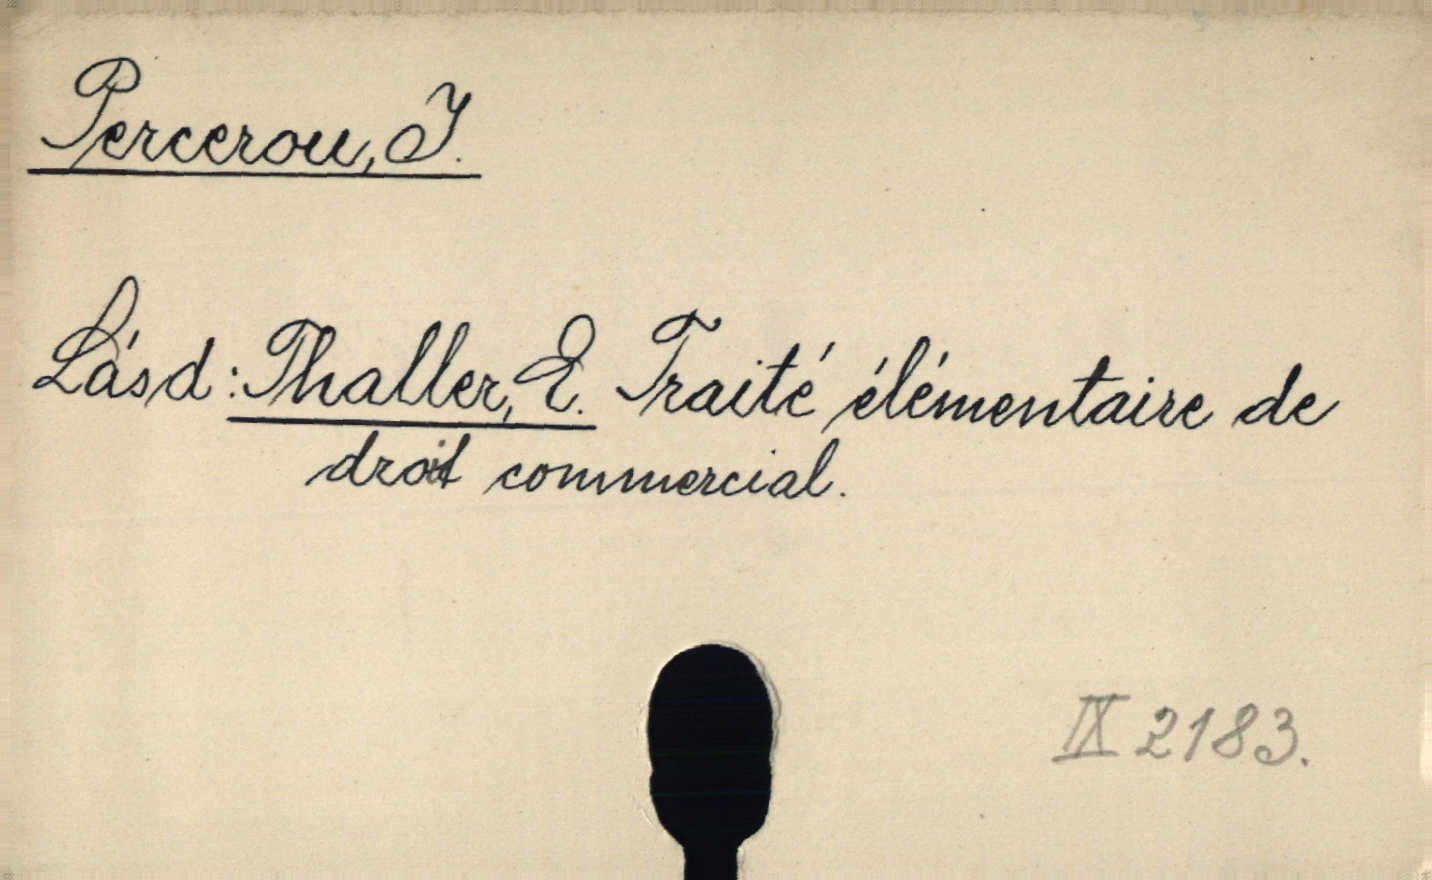 Percerou, J.
Lásd: Thaller, E. Traité élémentaire de
droit commercial.
IX 2183.